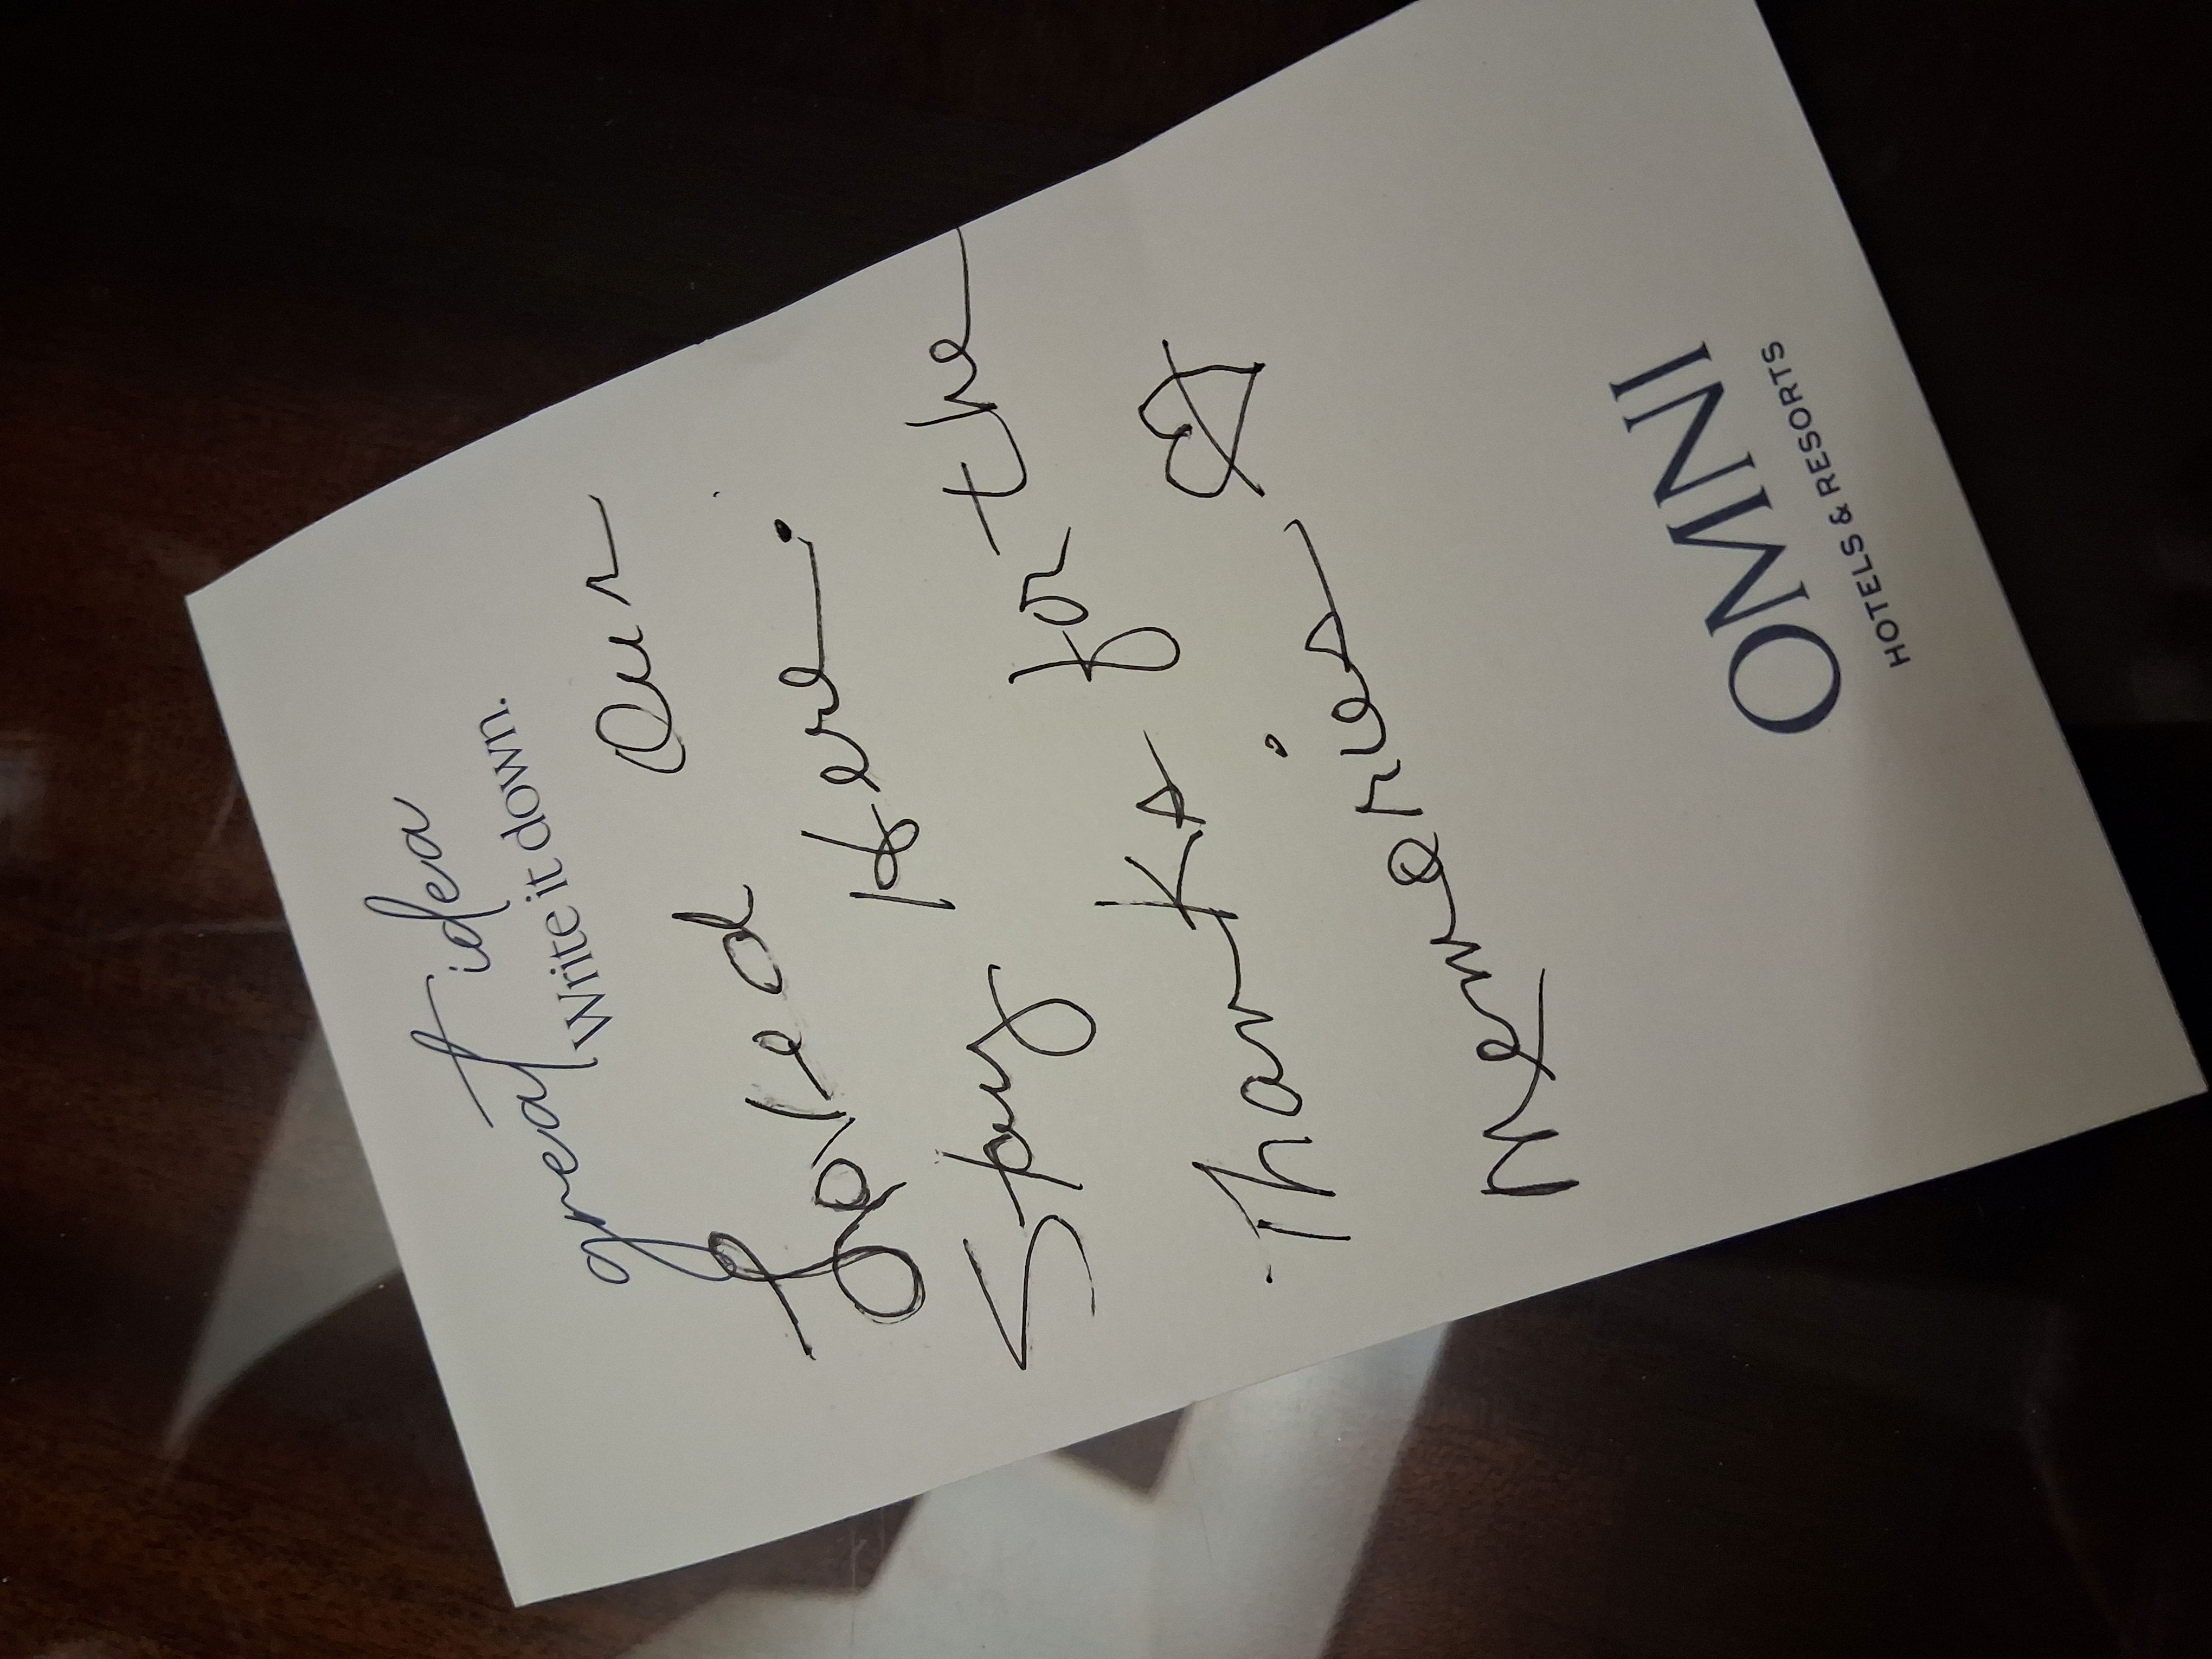 great idea
write it down.
Loved our
Stay Here.
Thanks for the
Memories
OMNI
HOTELS & RESORTS